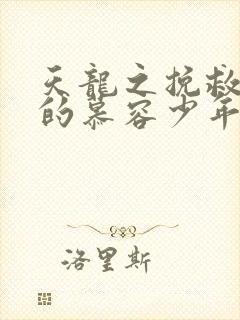 天龍之挽救
的慕容少年
洛里斯